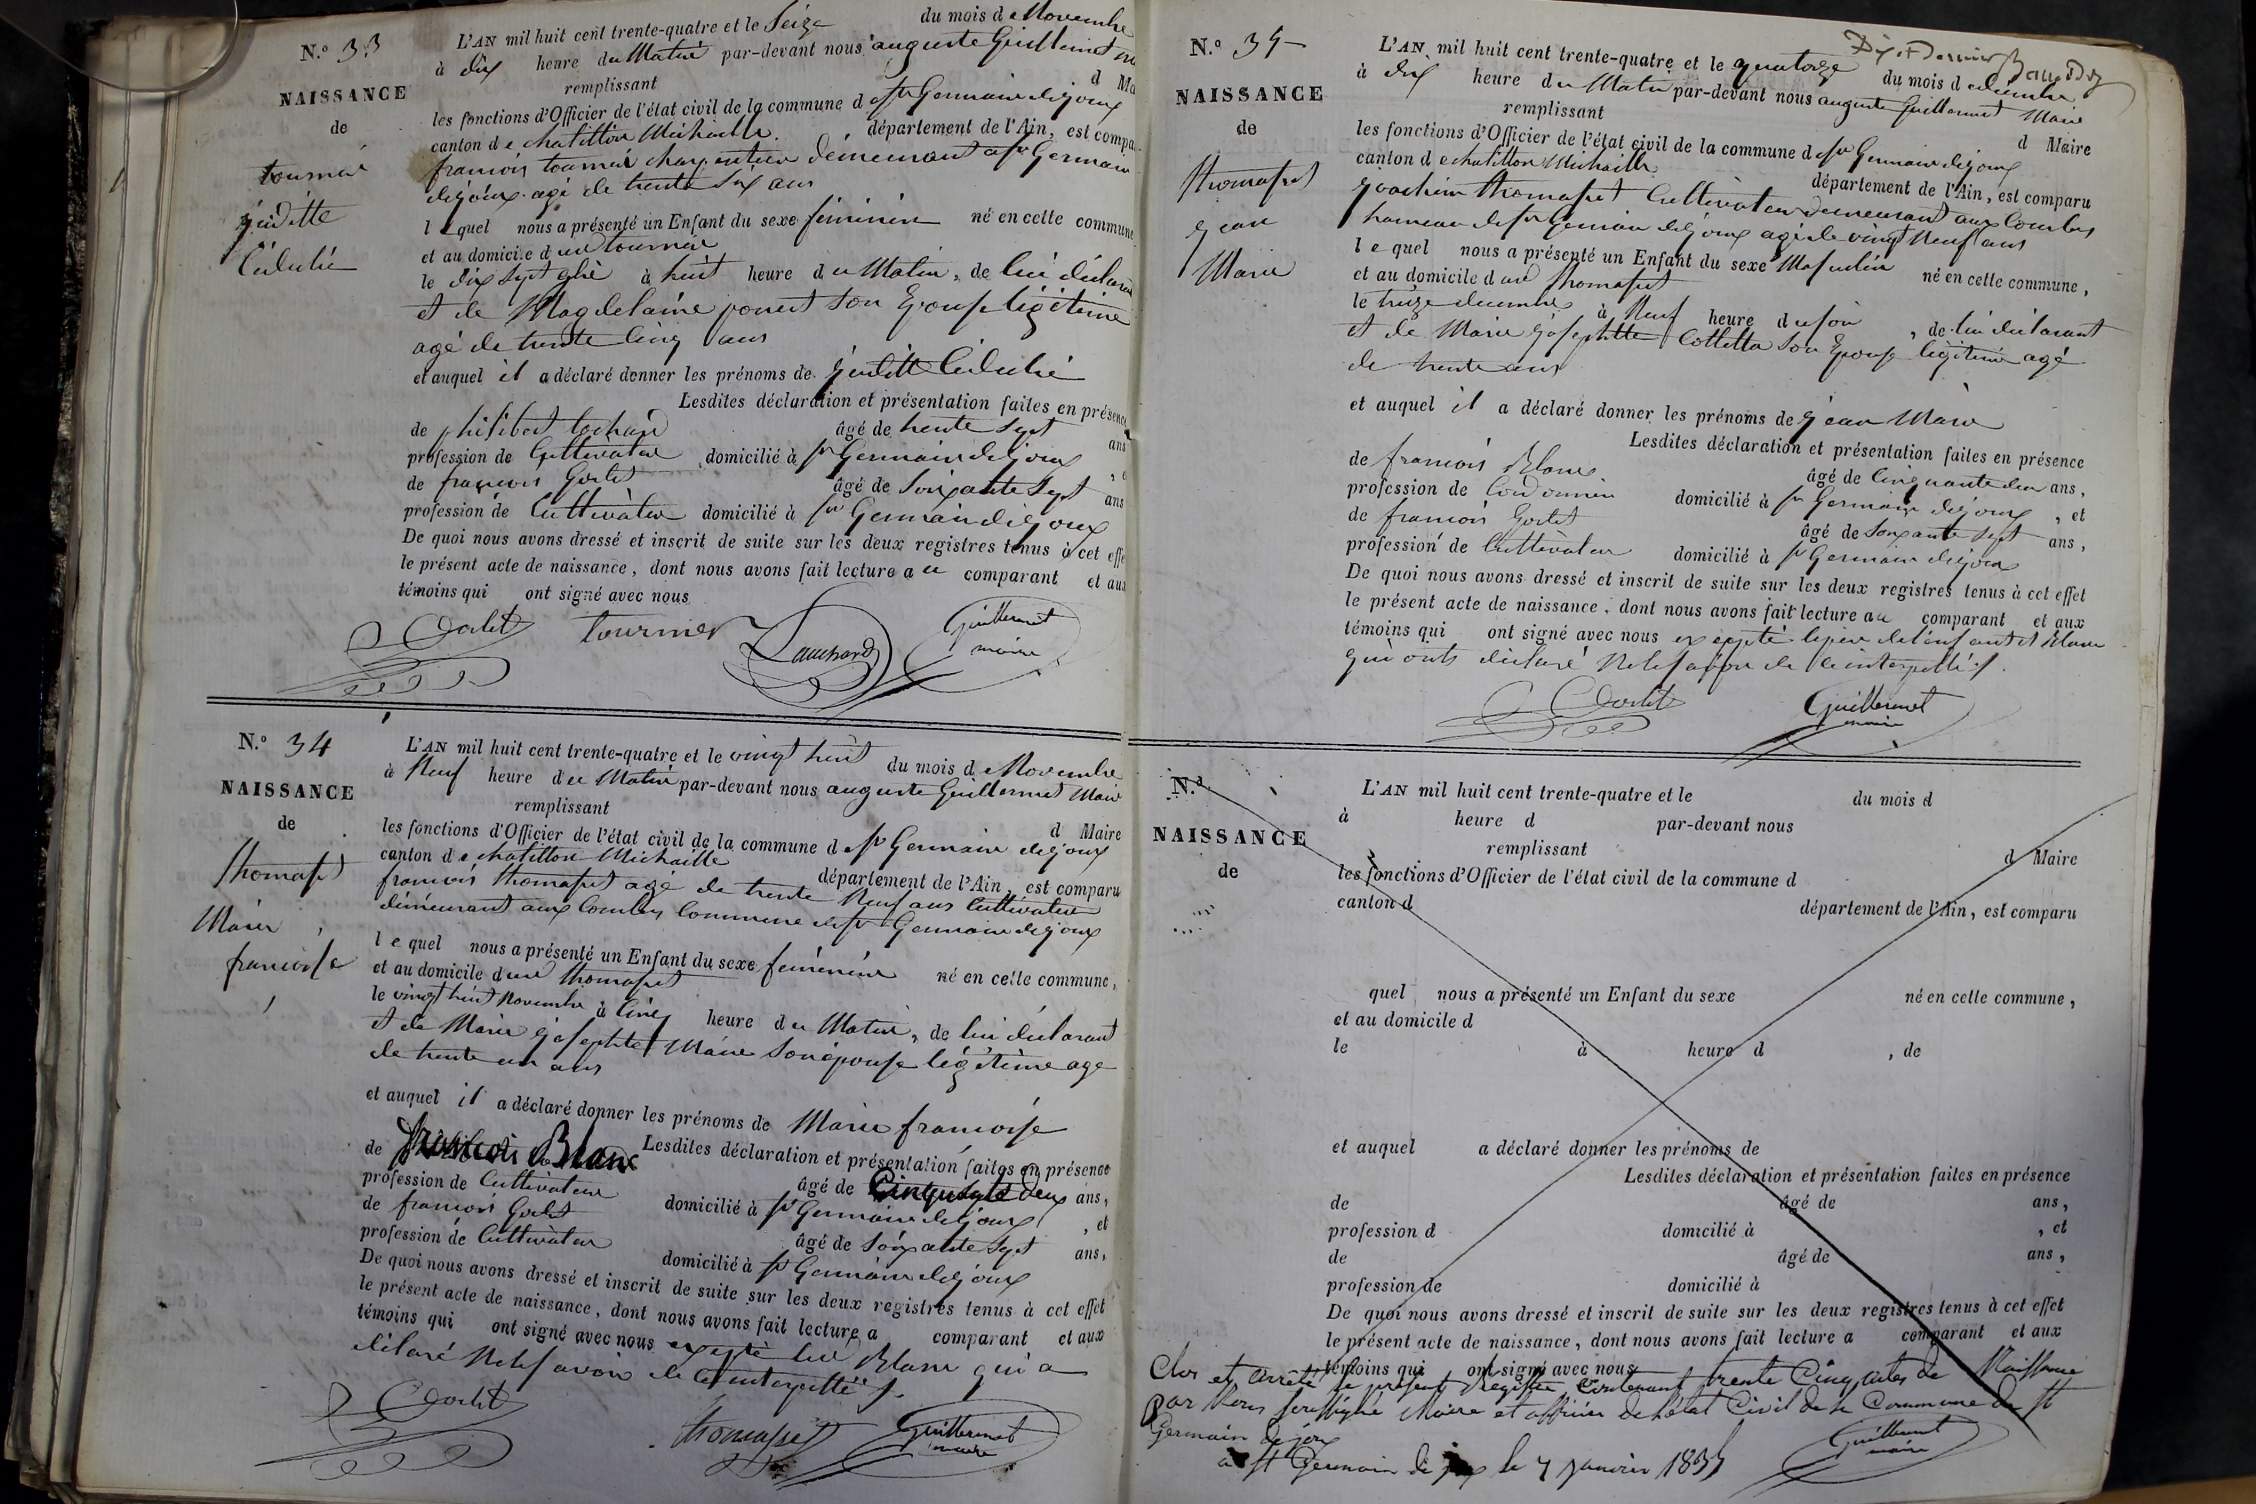 N.º 33
NAISSANCE
de
tournié
juditte
L'AN mil huit cent trente-quatre et le Seize du mois d e Novembre
à dix heure du Matin par-devant nous auguste Guillermet
remplissant d Ma
les fonctions d'Officier de l'état civil de la commune d e St Germain dejoux
canton d e chatillon Michaille. département de l'Ain, est compa
francois tournié charpentier demeurant a St Germain
dejoux agé de trente Six ans
l equel nous a présenté un Enfant du sexe féminin né en cette commune
et au domicile d udt tournié
le dix sept à huit heure d u Matin, de lui déclarant
et de Magdelaine ponset son Epouse légitime
agé de trente Cinq ans
et auquel il a déclaré donner les prénoms de juditte
Lesdites déclaration et présentation faites en présence
de philibert âgé de trente sept ans
profession de Cultivateur domicilié à St Germain dejoux
de françois Gorlet âgé de Soixante Sept ans
profession de Cultivateur domicilié à St Germain dejoux
De quoi nous avons dressé et inscrit de suite sur les deux registres tenus à cet effe
le présent acte de naissance, dont nous avons fait lecture a u comparant et aux
témoins qui ont signé avec nous
Gorlet tournier Lauchard Guillermet
maire
N.º 34
NAISSANCE
de
thomasset
Marie
francoise
L'AN mil huit cent trente-quatre et le vingt huit du mois d e Novembre
à Neuf heure d u Matin par-devant nous auguste Guillermet Maire
remplissant d Maire
les fonctions d'Officier de l'état civil de la commune d e St Germain dejoux
canton d e chatillon Michaille département de l'Ain, est comparu
francois thomasset agé de trente Neuf ans Cultivateur
demeurant aux Combes Commune de St Germain dejoux
l e quel nous a présenté un Enfant du sexe féminine né en cette commune,
et au domicile d udt thomasset
le vingt huit Novembre à Cinq heure d u Matin, de lui déclarant
et de Marie josephte Maire son épouse légitime agé
de trente un ans
et auquel il a déclaré donner les prénoms de Marie francoise
Lesdites déclaration et présentation faites en présence
de francois Blanc âgé de Cinquante deux ans,
profession de Cultivateur domicilié à St Germain dejoux, et
de francois Gorlet âgé de Soixante Sept ans,
profession de Cultivateur domicilié à St Germain dejoux
De quoi nous avons dressé et inscrit de suite sur les deux registres tenus à cet effet
le présent acte de naissance, dont nous avons fait lecture a comparant et aux
témoins qui ont signé avec nous excepté led Blanc qui a
déclaré Ne le savoir de ce interpellé
Gorlet thomasset Guillermet
maire
N.º 35
NAISSANCE
de
thomasset
jean
Marie
L'AN mil huit cent trente-quatre et le quatorze du mois d e decembre
à dix heure d u Matin par-devant nous auguste Guillermet Maire
remplissant d Maire
les fonctions d'Officier de l'état civil de la commune d e St Germain dejoux
canton d e chatillon Michaille département de l'Ain, est comparu
joachim thomasset Cultivateur demeurant aux Combes
hameau de St Germain dejoux agé de vingt Neuf ans
l e quel nous a présenté un Enfant du sexe Masculin né en cette commune,
et au domicile d udt thomasset
le treize decembre à Neuf heure d u soir, de lui déclarant
et de Marie josephtte Colletta son Epouse légitime agé
de trente ans
et auquel il a déclaré donner les prénoms de jean Marie
Lesdites déclaration et présentation faites en présence
de francois Blanc âgé de Cinquante deux ans,
profession de Cordonnier domicilié à St Germain dejoux, et
de francois Gorlet âgé de Soixante Sept ans,
profession de Cultivateur domicilié à St Germain dejoux
De quoi nous avons dressé et inscrit de suite sur les deux registres tenus à cet effet
le présent acte de naissance, dont nous avons fait lecture au comparant et aux
témoins qui ont signé avec nous excepté le père de l'enfant et Blanc
qui onts déclaré Ne le savoir de ce interpellés
Gorlet Guillermet
maire
N.º
NAISSANCE
de
L'AN mil huit cent trente-quatre et le du mois d
à heure d par-devant nous
remplissant d Maire
les fonctions d'Officier de l'état civil de la commune d
canton d département de l'Ain, est comparu
quel nous a présenté un Enfant du sexe né en cette commune,
et au domicile d
le à heure d , de
et auquel a déclaré donner les prénoms de
Lesdites déclaration et présentation faites en présence
de âgé de ans,
profession d domicilié à , et
de âgé de ans,
profession de domicilié à
De quoi nous avons dressé et inscrit de suite sur les deux registres tenus à cet effet
le présent acte de naissance, dont nous avons fait lecture a comparant et aux
témoins qui ont signé avec nous
Clos et arrêté le présent Registre Contenant trente Cinq actes de Naissance
par Nous soussigné Maire et officier de l'état Civil de la Commune de St
Germain de joux
a St Germain de joux le 7 janvier 1835
Guillermet
maire